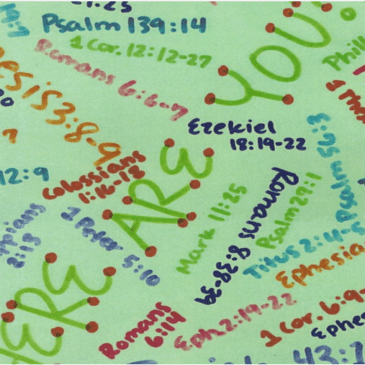 Psalm 139:14
1 Cor. 12:12-27
YOU!
Romans 6:6-7
esis 3:8-9
Ezekiel
18:19-22
12:9
Colossians
1:16-18
ARE
Mark 11:25
Romans 8:38-39
Psalm 27:1
Psalm 56:3
Titus 2:4-6
1 Peter 5:10
Ephesia
HERE
Romans
6:14
Eph 2:19-22
1 Cor. 6:9-
Ephe
43:2